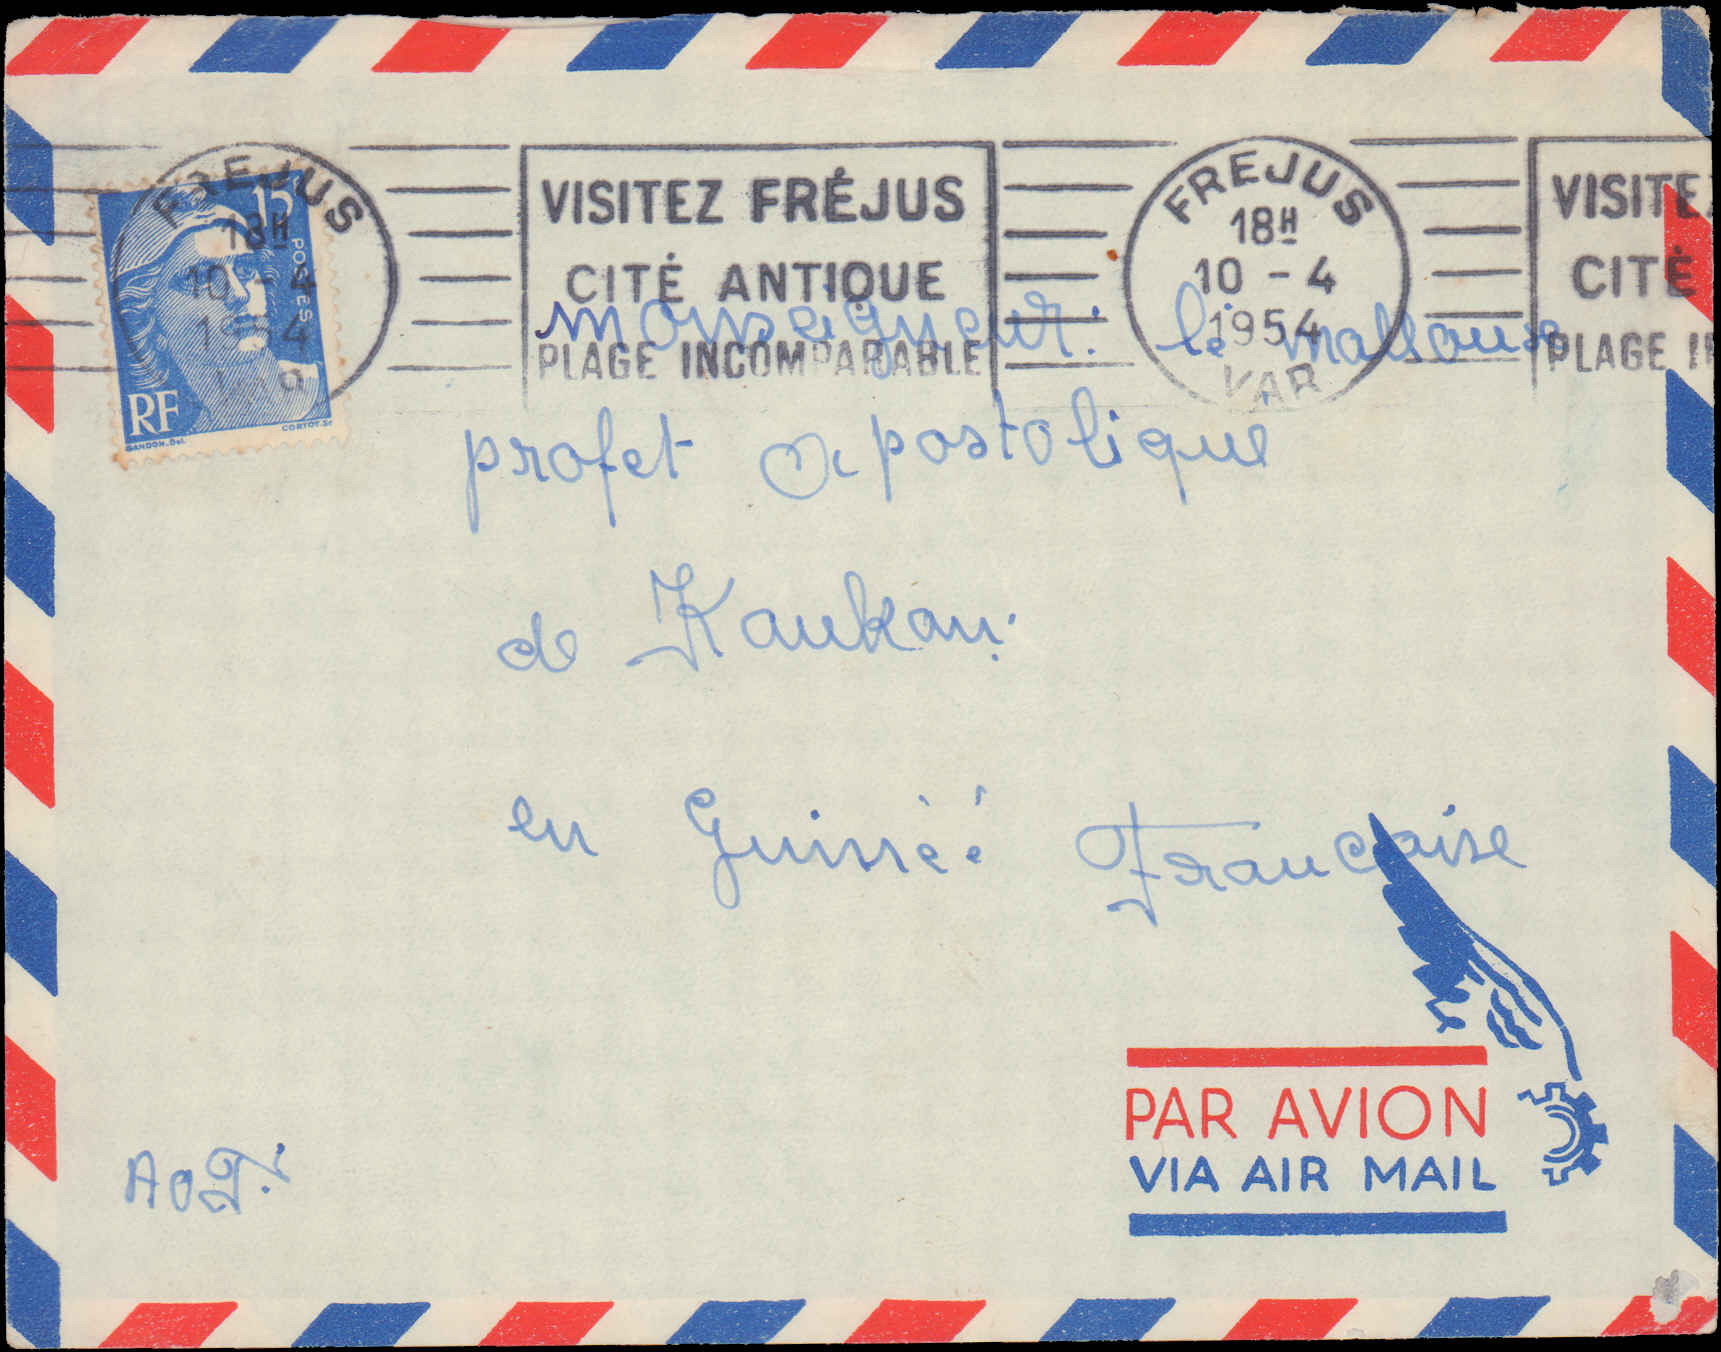 FREJUS
18H
10 - 4
1954
VAR
15
POSTES
RF
GANDON.Del.
CORTOT.Sc
VISITEZ FRÉJUS
CITÉ ANTIQUE
PLAGE INCOMPARABLE
FREJUS
18H
10 - 4
1954
VAR
VISITE
CITÉ
PLAGE IN
monseigneur: le
profet apostolique
de Kankan
en Guinèé Francaise
PAR AVION
VIA AIR MAIL